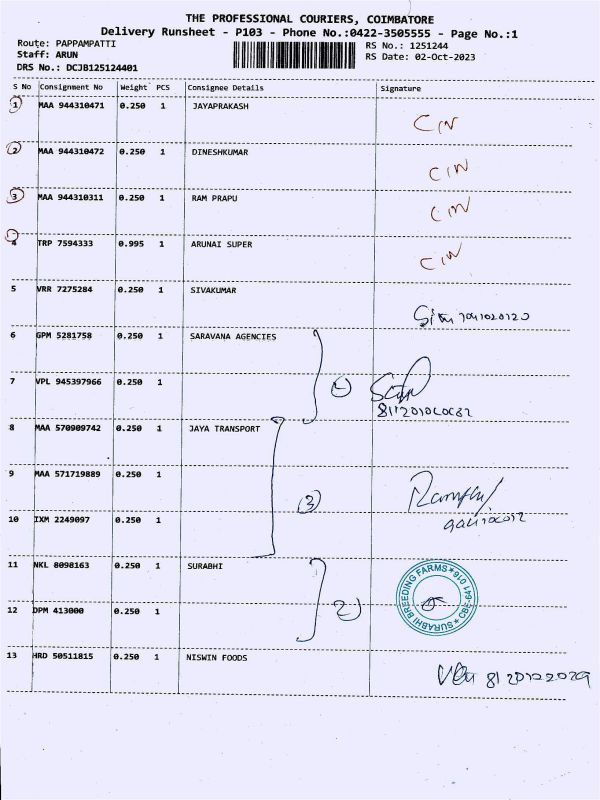 THE PROFESSIONAL COURIERS, COIMBATORE
Delivery Runsheet - P103 - Phone No.:0422-3505555 - Page No.:1
Route: PAPPAMPATTI RS No.: 1251244
Staff: ARUN RS Date: 02-Oct-2023
DRS No.: DCJB125124401
S No Consignment No Weight PCS Consignee Details Signature
1 MAA 944310471 0.250 1 JAYAPRAKASH CIN
2 MAA 944310472 0.250 1 DINESHKUMAR CIN
3 MAA 944310311 0.250 1 RAM PRAPU CIN
4 TRP 7594333 0.995 1 ARUNAI SUPER CIN
5 VRR 7275284 0.250 1 SIVAKUMAR
6 GPM 5281758 0.250 1 SARAVANA AGENCIES
7 VPL 945397966 0.250 1
8 MAA 570909742 0.250 1 JAYA TRANSPORT
9 MAA 571719889 0.250 1
3
10 IXM 2249097 0.250 1
11 NKL 8098163 0.250 1 SURABHI
SURABHI BREEDING FARMS * CBE-641 016 *
12 DPM 413000 0.250 1 2
13 HRD 50511815 0.250 1 NISWIN FOODS